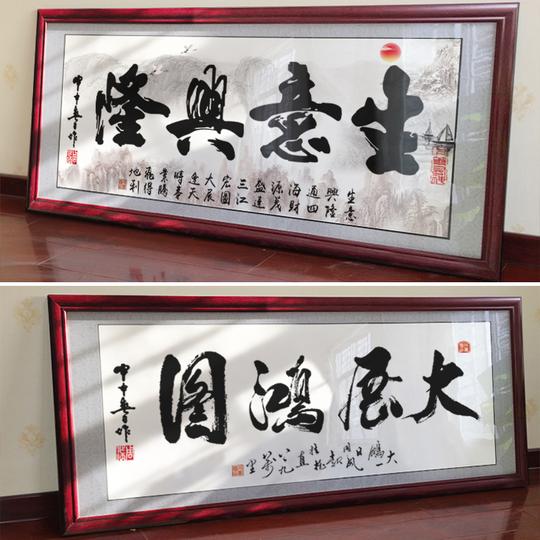 生意興隆
生意
興隆
通四
海財
源茂
盛達
三江
宏圖
大展
逢天
時事
業騰
飛得
地利
大展鴻圖
大
鵬一
日
同風
起
扶摇
直
上九
萬
里